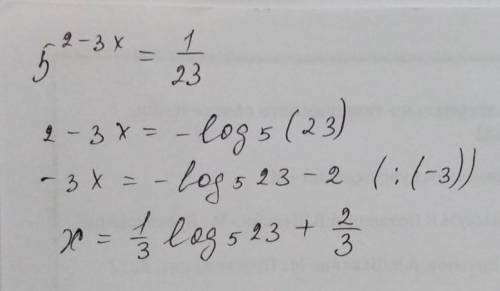 5^{2-3x} = \frac{1}{23}
2-3x = -log₅(23)
-3x = -log₅23 - 2 (:(-3))
x = \frac{1}{3} log₅23 + \frac{2}{3}